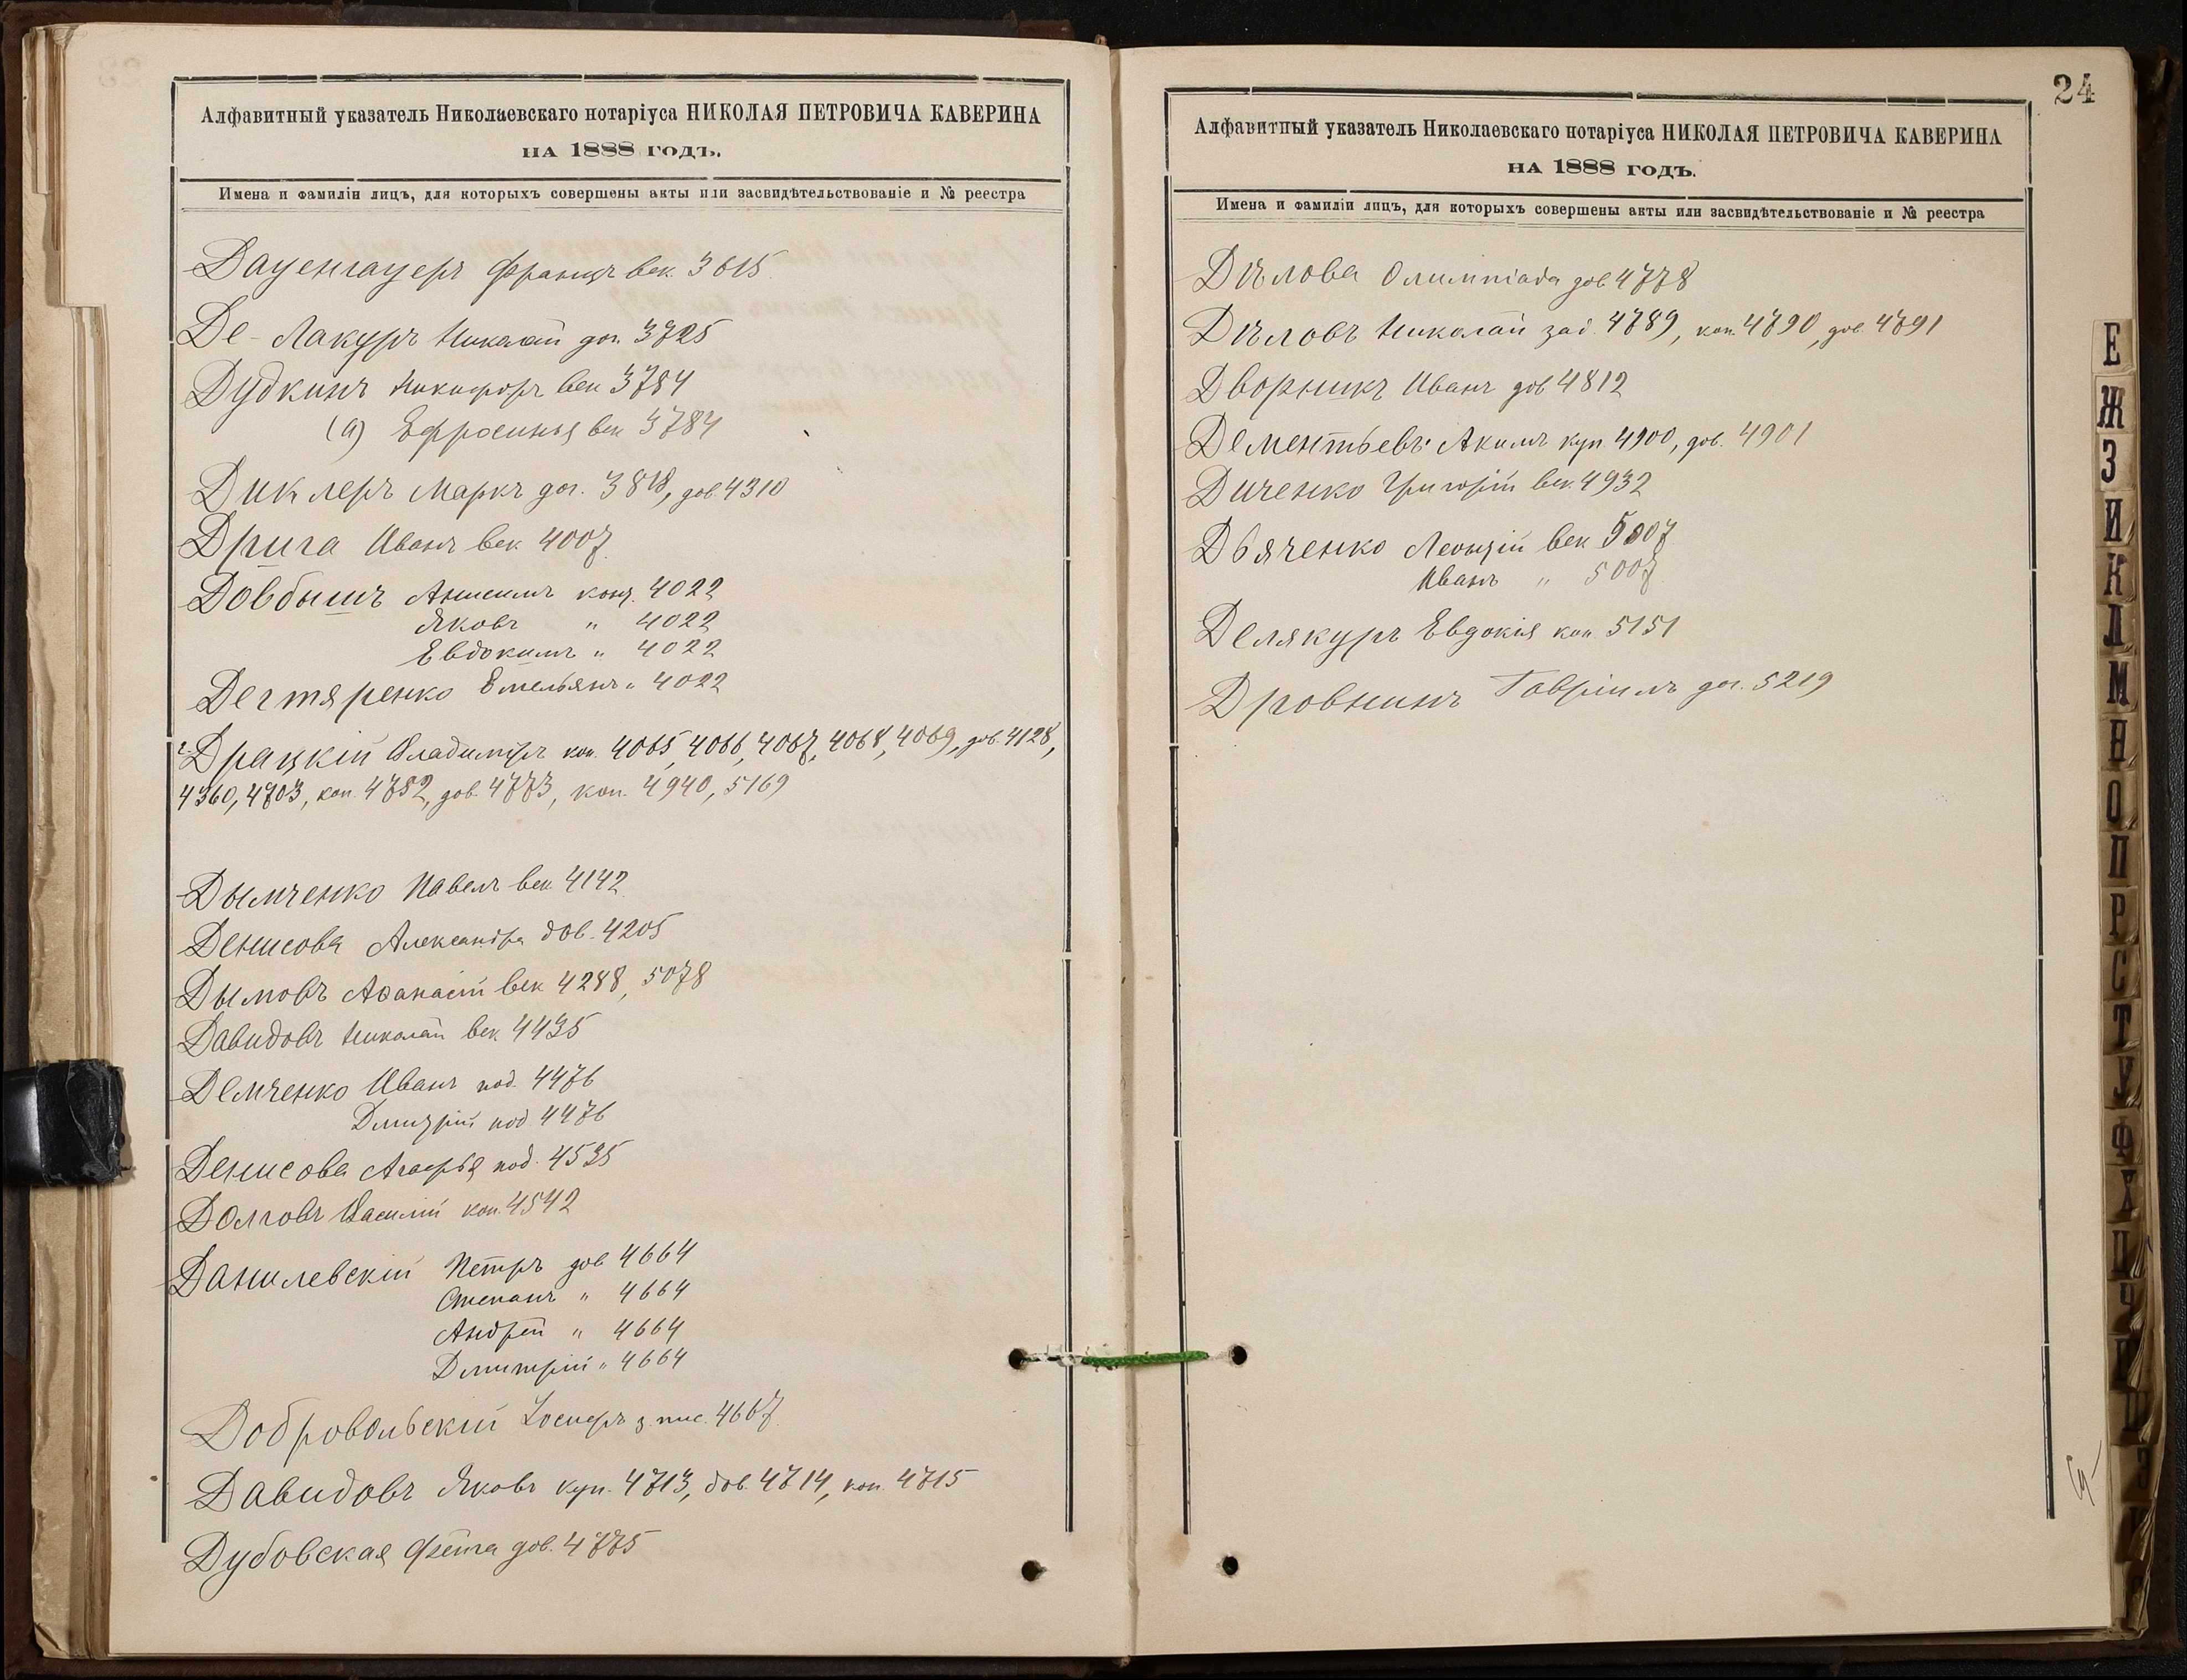 Алфавитный указатель Николаевскаго нотаріуса НИКОЛАЯ ПЕТРОВИЧА КАВЕРИНА
НА 1888 ГОДЪ.
Имена и фамиліи лицъ, для которыхъ совершены акты или засвидѣтельствованіе и № реестра
Дауенгауеръ Францъ век. 3615
Де-Лакуръ Николай дог. 3725
Дудкинъ Никифоръ век 3784
(а) Ефросинья век 3784
Диклеръ Маркъ дог. 3818, дов. 4310
Дрига Иванъ век 4007
Довбышъ Анисимъ конт. 4022
Яковъ " 4022
Евдокимъ " 4022
Дегтяренко Емельянъ " 4022
Драцкій Владиміръ коп. 4065, 4066, 4067, 4068, 4069, дов. 4128,
4360, 4703, коп. 4752, дов. 4773, коп. 4940, 5169
Дымченко Павелъ век 4142
Денисова Александра дов. 4205
Дымовъ Аѳанасій век 4288, 5078
Давидовъ Николай век 4435
Демченко Иванъ под. 4476
Дмитрій под 4476
Денисова Агафья под. 4535
Долговъ Василій коп. 4542
Данилевскій Петръ дов 4664
Степанъ " 4664
Андрей " 4664
Дмитрій " 4664
Добровольскій Іосифъ з. пис. 4667
Давидовъ Яковъ куп. 4713, дов. 4714, коп. 4715
Дубовская дов. 4775
24
Алфавитный указатель Николаевскаго нотаріуса НИКОЛАЯ ПЕТРОВИЧА КАВЕРИНА
НА 1888 ГОДЪ.
Имена и фамиліи лицъ, для которыхъ совершены акты или засвидѣтельствованіе и № реестра
Дѣлова Олимпіада дов. 4778
Дѣловъ Николай зад. 4789, коп. 4790, дов. 4791
Дворникъ Иванъ дов 4812
Дементьевъ Акимъ куп. 4900, дов. 4901
Диченко Григорій век. 4932
Дьяченко Леонтій век 5007
Иванъ " 5007
Делякуръ Евдокія коп. 5151
Дровнинъ Гавріилъ дог. 5219
Е
Ж
З
И
К
Л
М
Н
О
П
Р
С
Т
У
Ф
Х
Ц
Ч